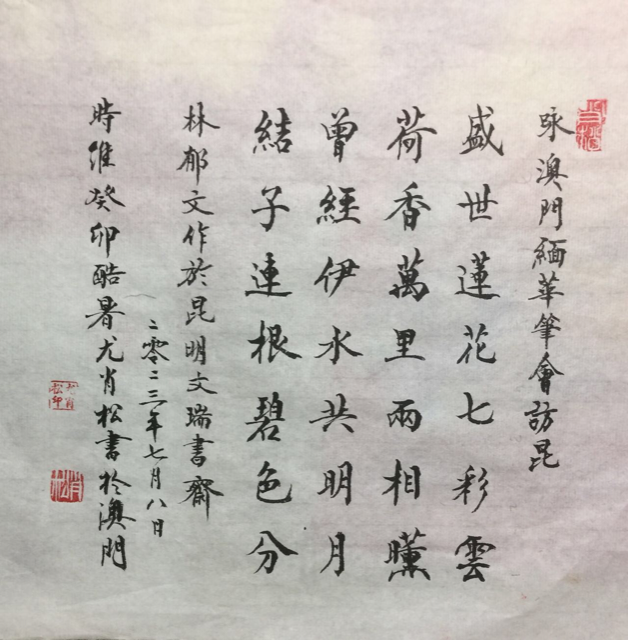 咏澳門緬華筆會訪昆
盛世蓮花七彩雲
荷香萬里兩相曛
曾經伊水共明月
結子連根碧色分
林郁文作於昆明文瑞書齋
二零二三年七月八日
時維癸卯酷暑尤肖松書於澳門
尤肖松印
肖松